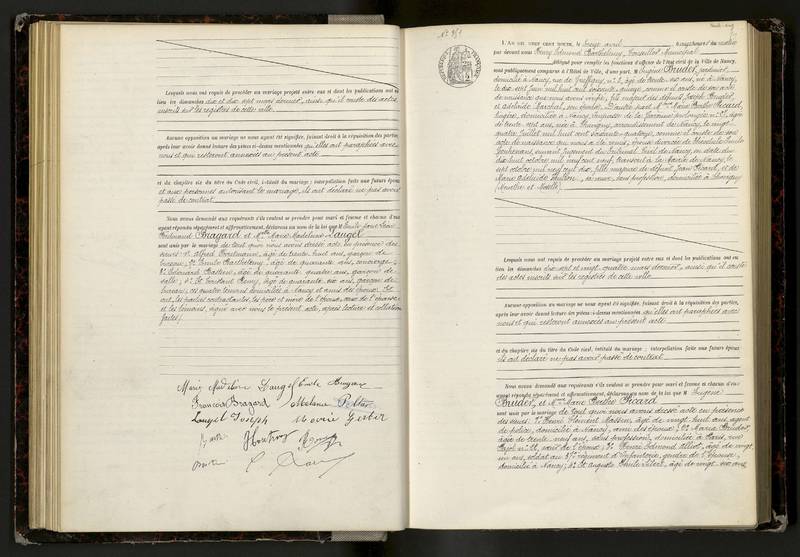 Lesquels nous ont requis de procéder au mariage projeté entre eux et dont les publications ont eu
lieu les dimanches dix et dix sept mars dernier, ainsi qu'il conste des actes
inscrits sur les registres de cette ville
Aucune opposition audit mariage ne nous ayant été signifiée, faisant droit à la réquisition des parties,
après leur avoir donné lecture des pièces ci-dessus mentionnées qu'elles ont paraphées avec
nous et qui resteront annexées au présent acte
et du chapitre six du titre du Code civil, intitulé du mariage ; interpellation faite aux futurs époux
et aux personnes autorisant le mariage, ils ont déclaré ne pas avoir
passé de contrat
Nous avons demandé aux requérants s'ils veulent se prendre pour mari et femme et chacun d'eux
ayant répondu séparément et affirmativement, déclarons au nom de la loi que M Emile Jean Léon
Ferdinand Bragard et Mlle Marie Madeleine Lauget
sont unis par le mariage de tout quoi nous avons dressé acte en présence des
sieurs 1° Alfred âgé de trente huit ans, garçon de
bureau, 2° Emile Barthélemy, âgé de quarante ans, concierge,
3° Edouard âgé de quarante quatre ans, garçon de
salle, 4° et Constant Remy, âgé de quarante six ans, garçon de
bureau, ces quatre témoins domiciliés à Nancy et amis des époux. Et
ont, les parties contractantes, les père et mère de l'époux, ceux de l'épouse
et les témoins, signé avec nous le présent acte, après lecture et collation
faites.
Marie Madeleine Lauget Emile Bragard
François Bragard Mélanie
Lauget Joseph Marie Gerber
N° 251
L'An mil neuf cent douze, le treize avril à heures du matin
par devant nous Henry Edmond Barthélemy, Conseiller Municipal
délégué pour remplir les fonctions d'officier de l'état civil de la Ville de Nancy,
sont publiquement comparus à l'Hôtel de Ville, d'une part, M Eugène Bruder, jardinier
domicilié à Nancy, rue de n° 2, âgé de trente six ans, né à Nancy,
le dix sept juin mil huit cent soixante quinze, comme il conste de son acte
de naissance que nous avons vérifié, fils majeur des défunts Joseph Bruder,
et Adélaïde Maréchal, son épouse. D'autre part Mme Marie Berthe Picard,
lingère, domiciliée à Nancy, Impasse de la Garenne prolongée n° 5, âgée
de trente sept ans, née à Thorigny, arrondissement de Nancy, le vingt
quatre juillet mil huit cent soixante quatorze, comme il conste de son
acte de naissance qui nous a été remis, épouse divorcée de Théodule Emile
suivant jugement du Tribunal Civil de Nancy, en date du
dix huit octobre mil neuf cent neuf, transcrit à la Mairie de Nancy, le
sept octobre mil neuf cent dix, fille majeure de défunt Jean Picard, et de
Marie Adélaïde sa veuve, sans profession, domiciliée à
(Meurthe et Moselle)
Lesquels nous ont requis de procéder au mariage projeté entre eux et dont les publications ont eu
lieu les dimanches dix sept et vingt quatre mars dernier, ainsi qu'il conste
des actes inscrits sur les registres de cette ville
Aucune opposition audit mariage ne nous ayant été signifiée, faisant droit à la réquisition des parties,
après leur avoir donné lecture des pièces ci-dessus mentionnées qu'elles ont paraphées avec
nous et qui resteront annexées au présent acte
et du chapitre six du titre du Code civil, intitulé du mariage ; interpellation faite aux futurs époux
ils ont déclaré ne pas avoir passé de contrat
Nous avons demandé aux requérants s'ils veulent se prendre pour mari et femme et chacun d'eux
ayant répondu séparément et affirmativement, déclarons au nom de la loi que M Eugène
Bruder, et Mme Marie Berthe Picard
sont unis par le mariage de tout quoi nous avons dressé acte en présence
des sieurs 1° Henri Florent âgé de vingt huit ans, agent
de police, domicilié à Nancy, ami des époux, 2° Maria Bruder,
âgée de trente neuf ans, sans profession, domiciliée à Paris, rue
n° 22, sœur de l'époux, 3° Pierre Edmond âgé de vingt
un ans, soldat au 37e régiment d'Infanterie, gendre de l'épouse,
domicilié à Nancy, 4° et Auguste Emile âgé de vingt six ans,